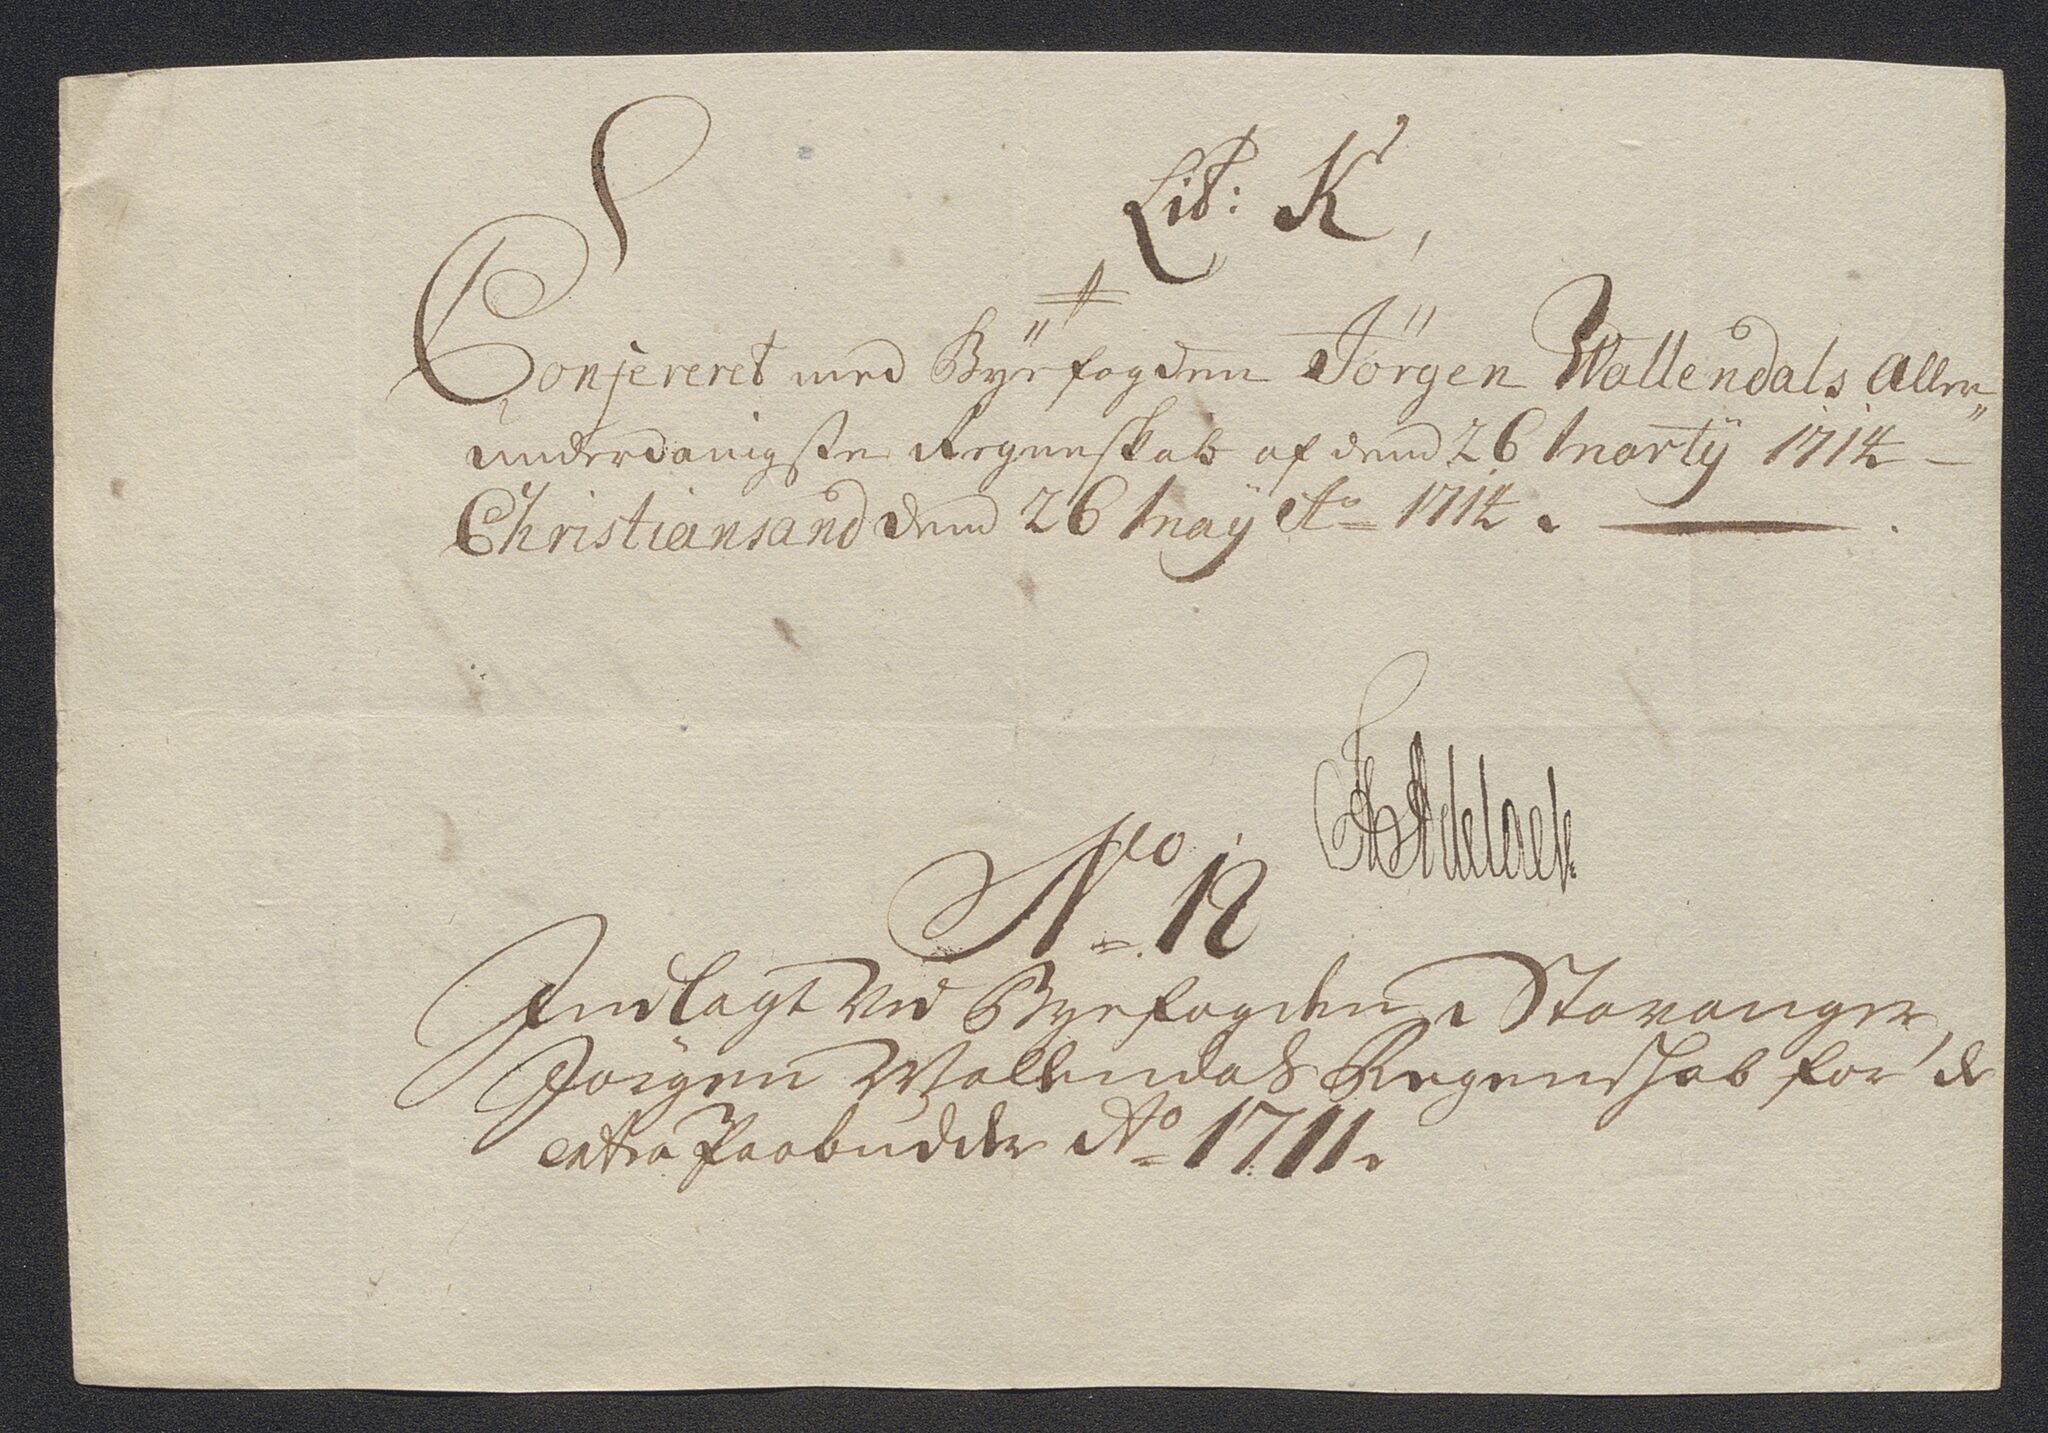 Lit: K,
Confereret med Byefogden Jörgen Wallendals Aller„
underdanigste Regenskab af dend 26 Marty 1714 –
Christiansand dend 26 May Ao 1714.
No. 12
Indlagt ved Byefogden i Stavanger
Jörgen Wallendals Regenskab for de
extra Paabudder Ao 1711.